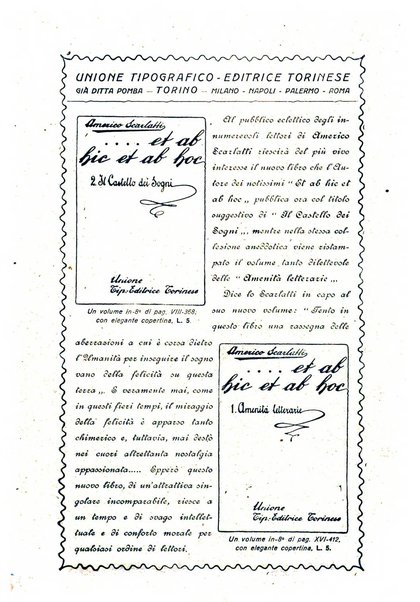 UNIONE TIPOGRAFICO - EDITRICE TORINESE
GIÀ DITTA POMBA — TORINO — MILANO - NAPOLI - PALERMO - ROMA
Americo Scarlatti
.... et ab
hic et ab hoc
2. Il Castello dei Sogni
Unione
Tip: Editrice Torinese
Un volume in-8º di pag. VIII-368,
con elegante copertina, L. 5.
Al pubblico eclettico degli in-
numerevoli lettori di Americo
Scarlatti riescirà del più vivo
interesse il nuovo libro che l'Au-
tore dei notissimi " Et ab hic et
ab hoc „ pubblica ora col titolo
suggestivo di " Il Castello dei
Sogni „, mentre nella stessa col-
lesione aneddotica viene ristam-
pato il volume tanto dilettevole
delle " Amenità letterarie „.
Dice lo Scarlatti in capo al
suo nuovo volume: " Tento in
questo libro una rassegna delle
aberrazioni a cui è corsa dietro
l'Umanità per inseguire il sogno
vano della felicità su questa
terra „. E veramente mai, come
in questi fieri tempi, il miraggio
della felicità è apparso tanto
chimerico e, tuttavia, mai destò
nei cuori altrettanta nostalgia
appassionata..... Epperò questo
nuovo libro, di un'attrattiva sin-
golare incomparabile, riesce a
un tempo e di svago intellet-
tuale e di conforto morale per
qualsiasi ordine di lettori.
Americo Scarlatti
.... et ab
hic et ab hoc
1. Amenità letterarie
Unione
Tip: Editrice Torinese
Un volume in-8º di pag. XVI-412,
con elegante copertina, L. 5.